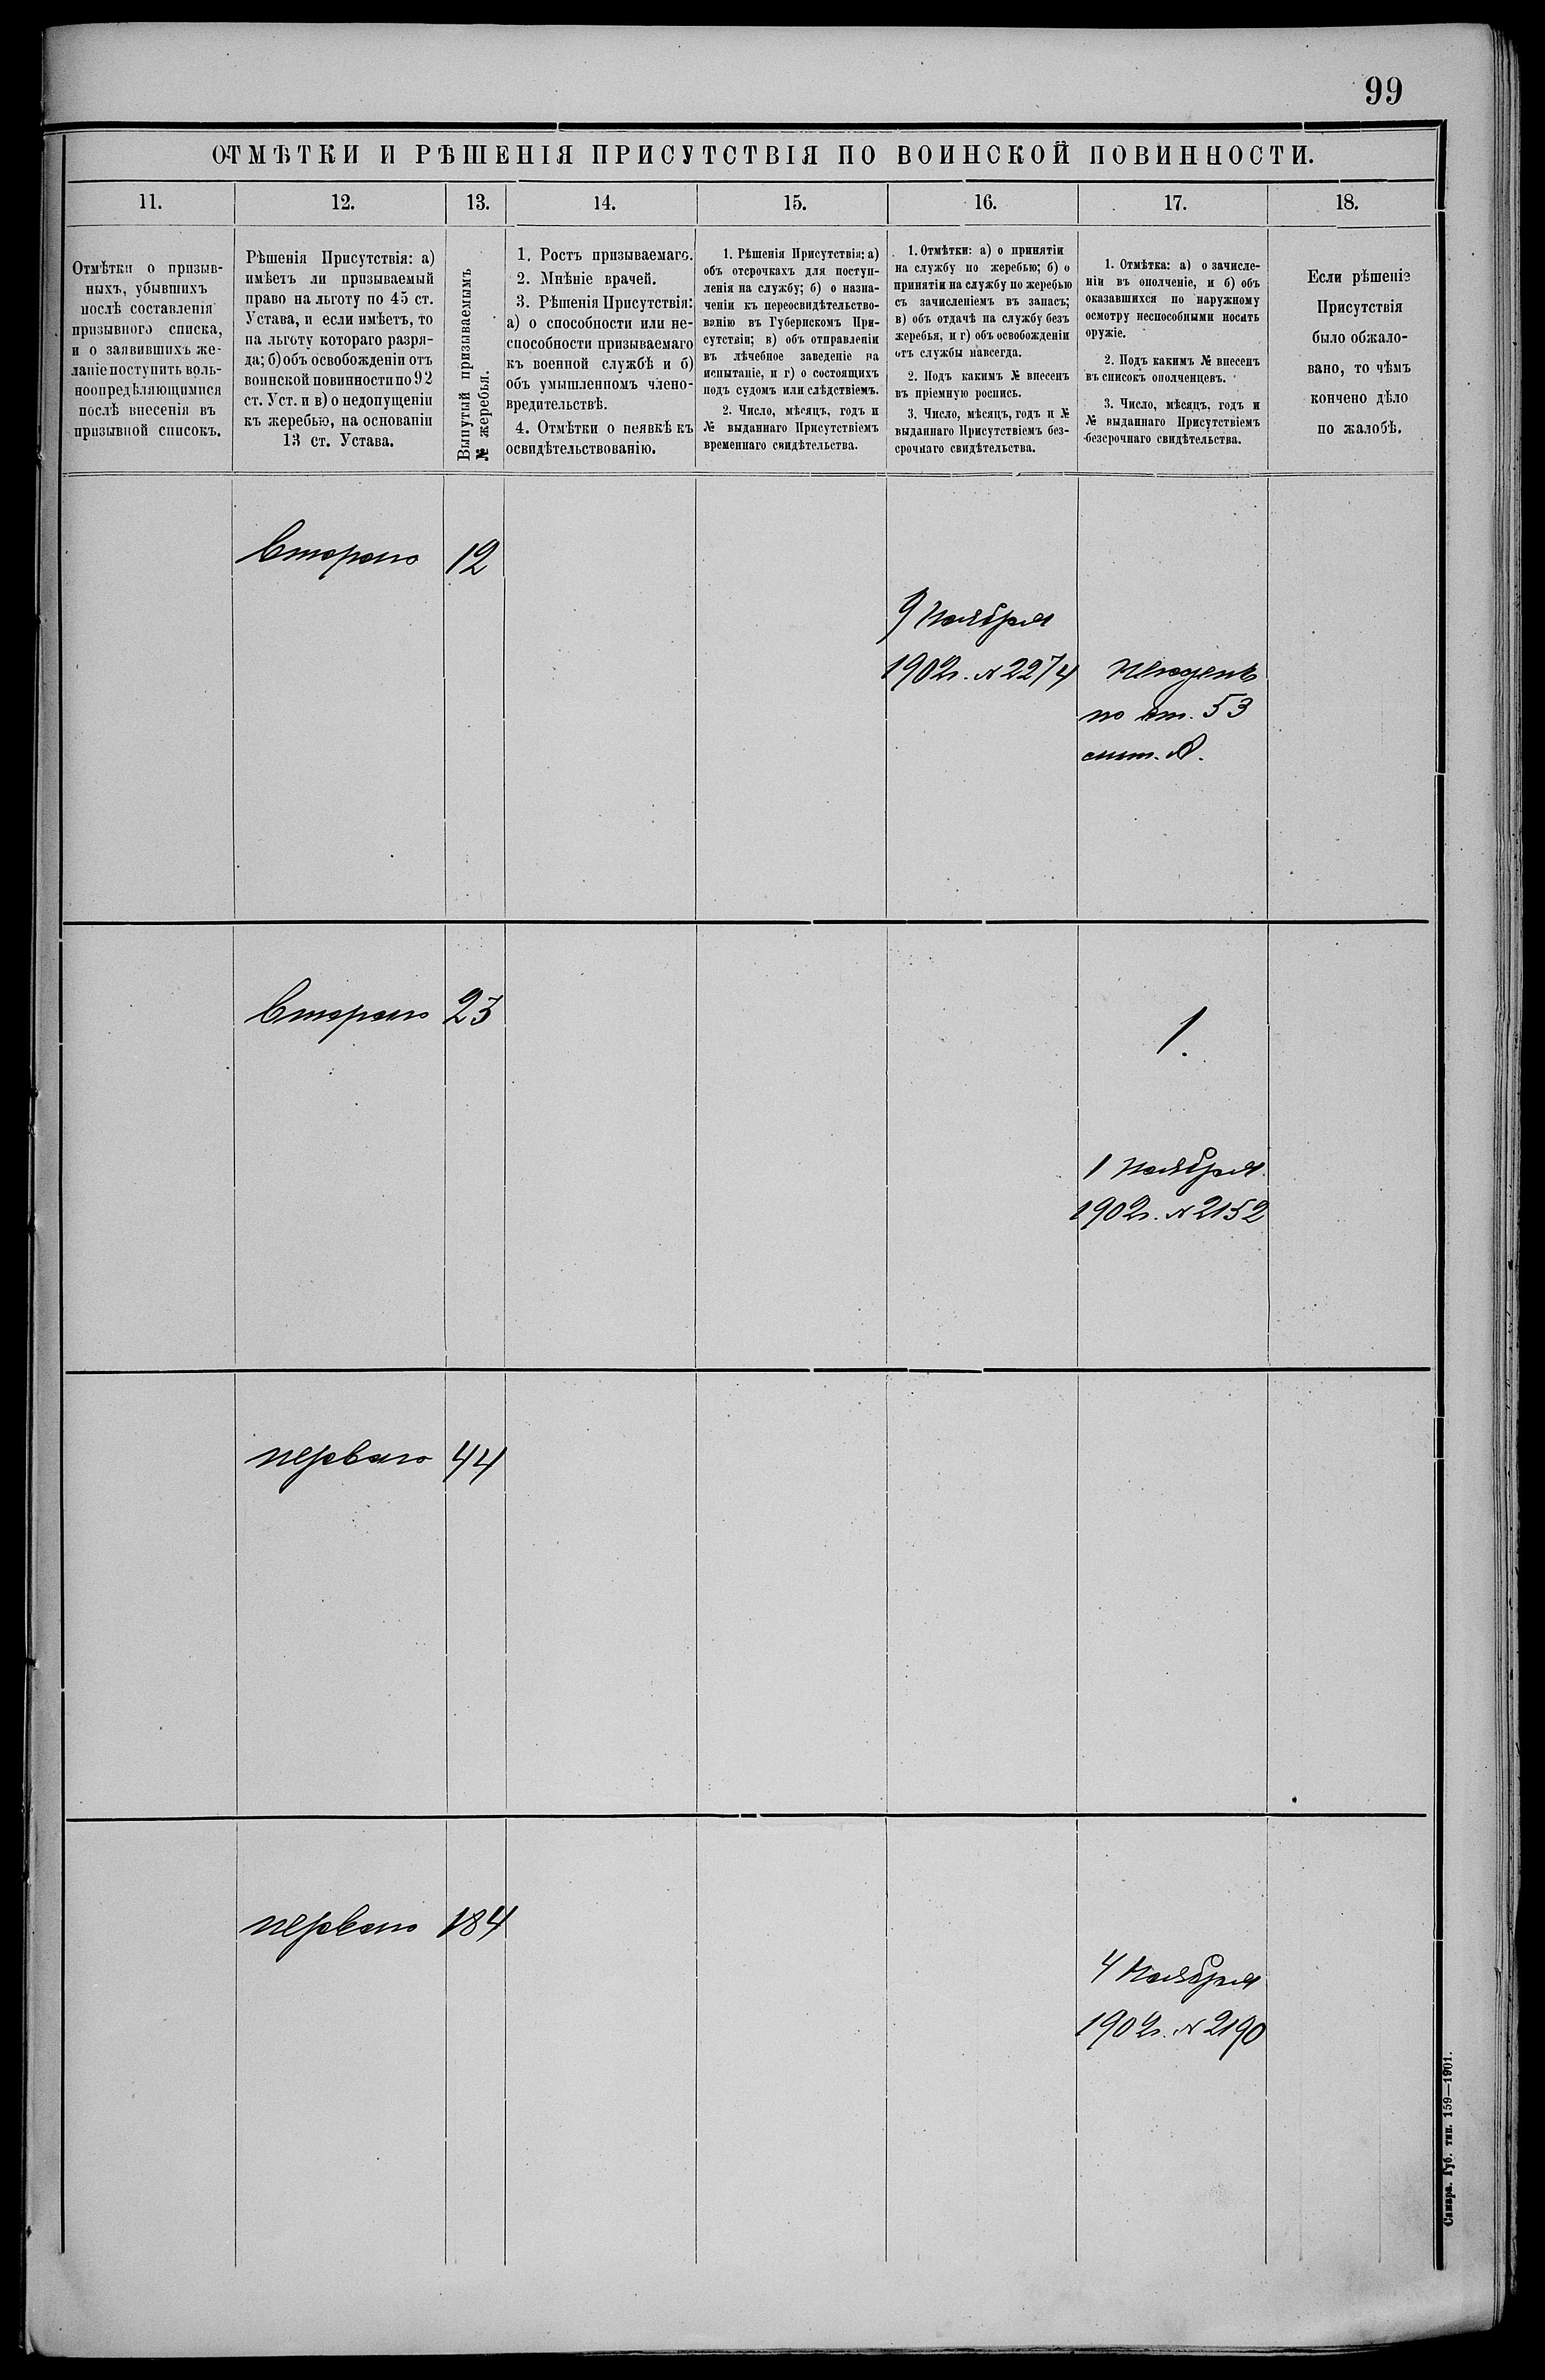 99
ОТМѢТКИ И РѢШЕНІЯ ПРИСУТСТВІЯ ПО ВОИНСКОЙ ПОВИННОСТИ.
11.
12.
13.
14.
15.
16.
17.
18.
Отмѣтки о призыв-
ныхъ, убывшихъ
послѣ составленія
призывного списка,
и о заявившихъ же-
ланіе поступить воль-
ноопредѣляющимися
послѣ внесенія въ
призывной списокъ.
Рѣшенія Присутствія: а)
имѣетъ ли призываемый
право на льготу по 45 ст.
Устава, и если имѣетъ, то
на льготу котораго разря-
да; б) объ освобожденіи отъ
воинской повинности по 92
ст. Уст. и в) о недопущеніи
къ жеребью, на основаніи
13 ст. Устава.
Вынутый призываемымъ
№ жеребья.
1. Ростъ призываемаго.
2. Мнѣніе врачей.
3. Рѣшенія Присутствія:
а) о способности или не-
способности призываемаго
къ военной службѣ и б)
объ умышленномъ члено-
вредительствѣ.
4. Отмѣтки о неявкѣ къ
освидѣтельствованію.
1. Рѣшенія Присутствія: а)
объ отсрочкахъ для поступ-
ленія на службу; б) о назна-
ченіи къ переосвидѣтельство-
ванію въ Губернскомъ При-
сутствіи; в) объ отправленіи
въ лѣчебное заведеніе на
испытаніе, и г) о состоящихъ
подъ судомъ или слѣдствіемъ.
2. Число, мѣсяцъ, годъ и
№ выданнаго Присутствіемъ
временнаго свидѣтельства.
1. Отмѣтки: а) о принятіи
на службу по жеребью; б) о
принятіи на службу по жеребью
съ зачисленіемъ въ запасъ;
в) объ отдачѣ на службу безъ
жеребья, и г) объ освобожденіи
отъ службы навсегда.
2. Подъ какимъ № внесенъ
въ пріемную роспись.
3. Число, мѣсяцъ, годъ и №
выданнаго Присутствіемъ без-
срочнаго свидѣтельства.
1. Отмѣтка: а) о зачисле-
ніи въ ополченіе, и б) объ
оказавшихся по наружному
осмотру неспособными носить
оружіе.
2. Подъ какимъ № внесенъ
въ списокъ ополченцевъ.
3. Число, мѣсяцъ, годъ и
№ выданнаго Присутствіемъ
безсрочнаго свидѣтельства.
Если рѣшеніе
Присутствія
было обжало-
вано, то чѣмъ
кончено дѣло
по жалобѣ.
Второго
12
9 Ноября
1902 г. № 2274
Негоденъ
по ст. 53
лит. А.
Второго
23
1.
1 Ноября
1902 г. № 2152
перваго
44
перваго
184
4 Ноября
1902 г. № 2190
Самара. Губ. тип. 159—1901.